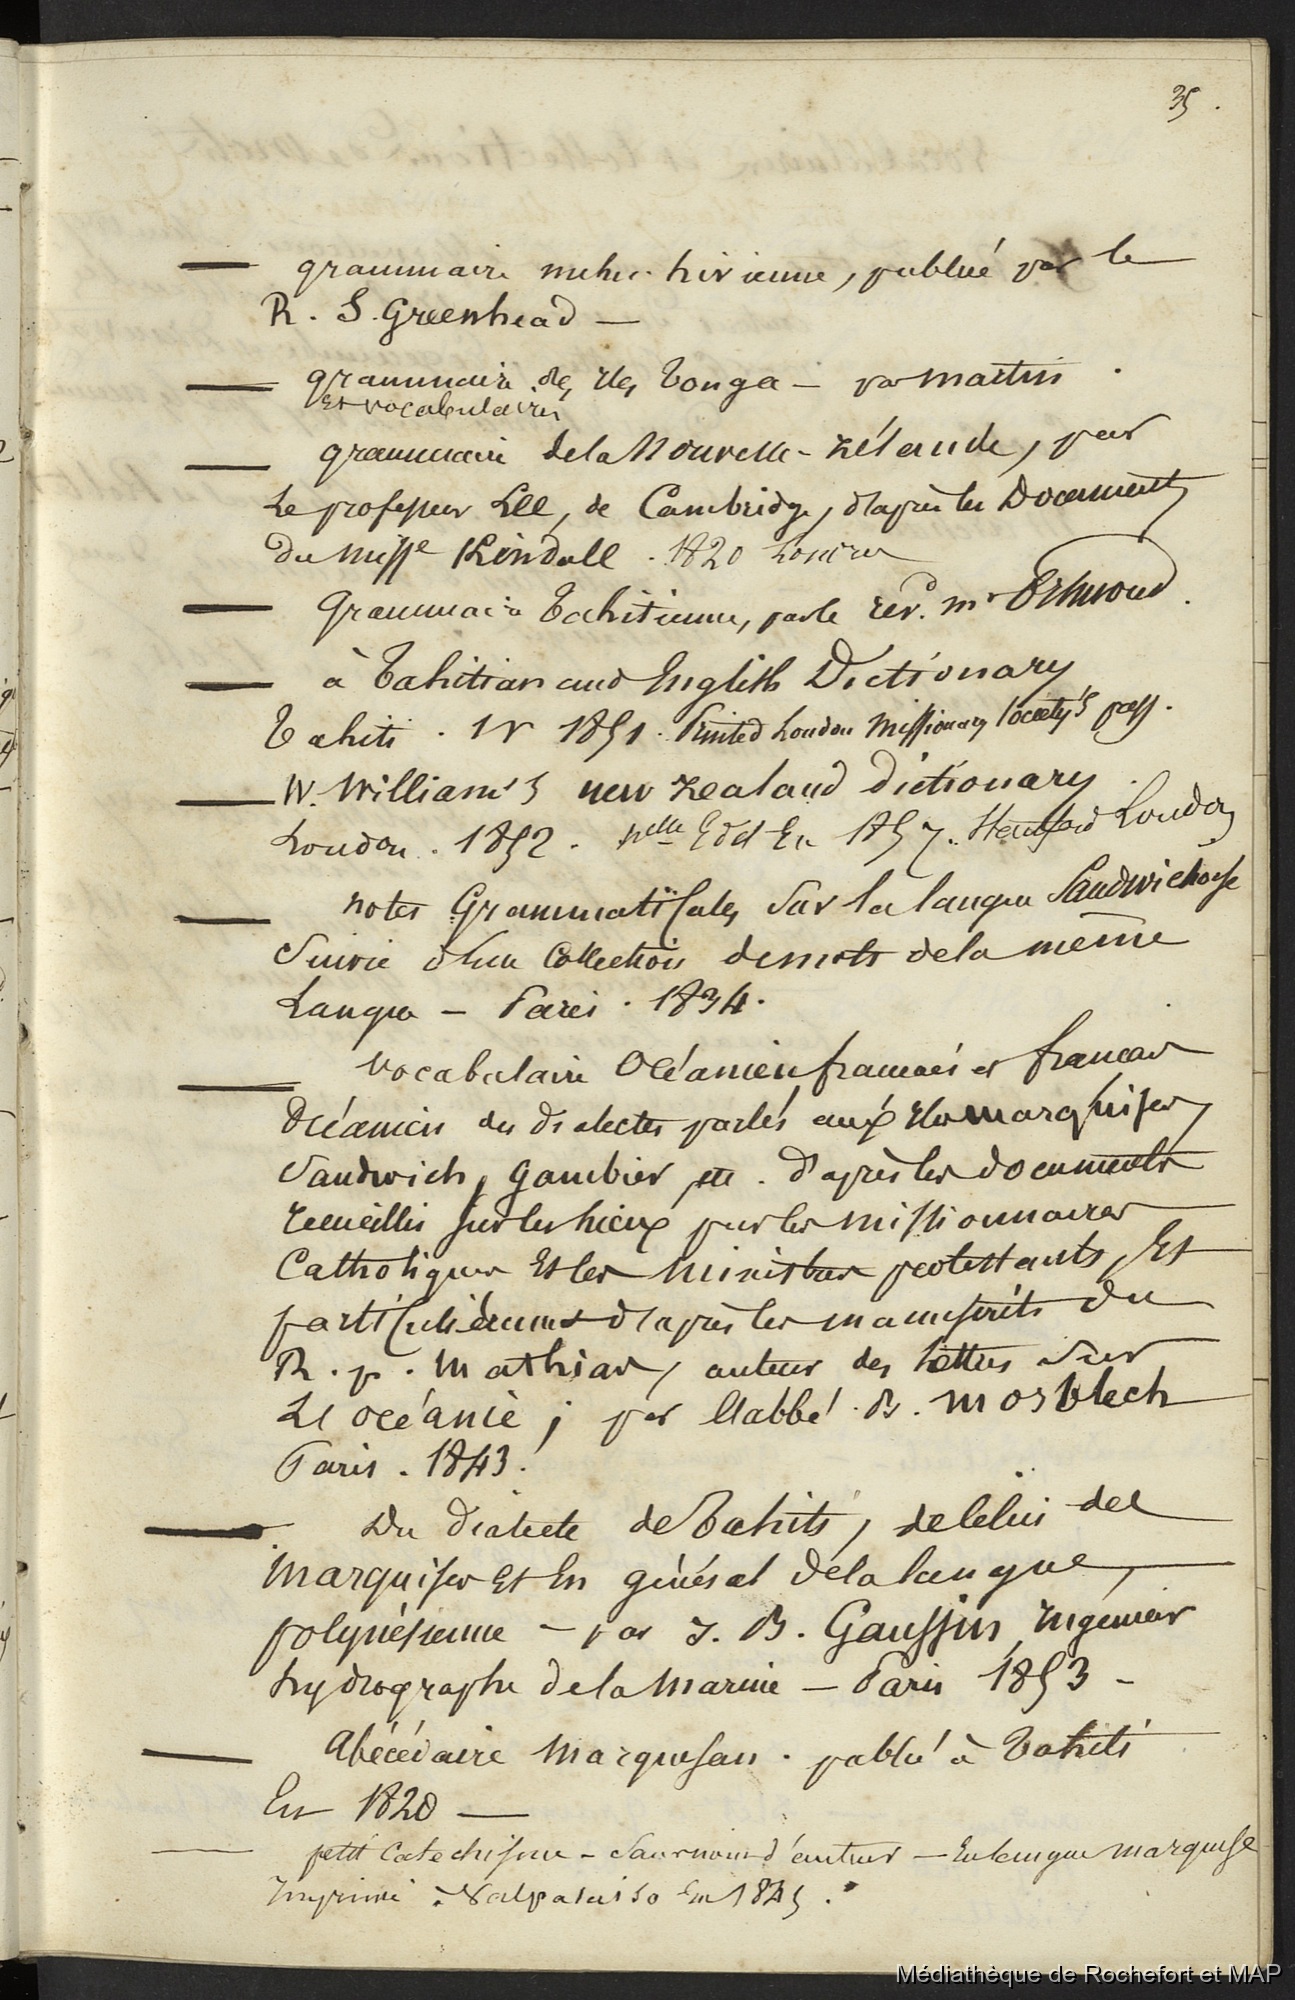 35.
— grammaire nuhu-hivienne, publiée par le
R. S. Greenhead —
— grammaire des Iles Tonga — par martin.
et vocabulaires
— grammaire de la Nouvelle-zélande, par
Le professeur Lee, de Cambridge, d'après les Documents
du misse Kendall. 1820 Londres
— Grammaire Tahitienne, par le rev.d mr Orsmond.
— à Tahitian and English Dictionary
Tahiti. 1851. Printed London Missionary Society's press.
— W. William's new zealand dictionary.
London. 1852. nlle Edit En 1857. Hertford London
— notes Grammaticales, sur la langue Sandwichoise
Suivie d'une Collection de mots de la même
Langue — Paris. 1834.
— Vocabulaire Océanien français et francais
Océanien des dialectes parlés aux Iles marquises,
Sandwich, Gambier, etc. d'après les documents
recueillis sur les lieux par les missionnaires
Catholiques Et les ministres protestants, Et
particulièrement d'après les manuscrits du
R. p. Mathias, auteur des lettres sur
L'océanie; par l'abbé B. mosblech
Paris. 1843.
— Du dialecte de Tahiti, de celui des
marquises Et En général de la langue,
polynésienne — par J. B. Gaussin, Ingénieur
hydrographe de la Marine — Paris 1853 —
— Abécédaire marquesan. publié à Tahiti
En 1820 —
— petit Catechisme — Sans nom d'auteur — En langue marquise
Imprimé à Valparaiso En